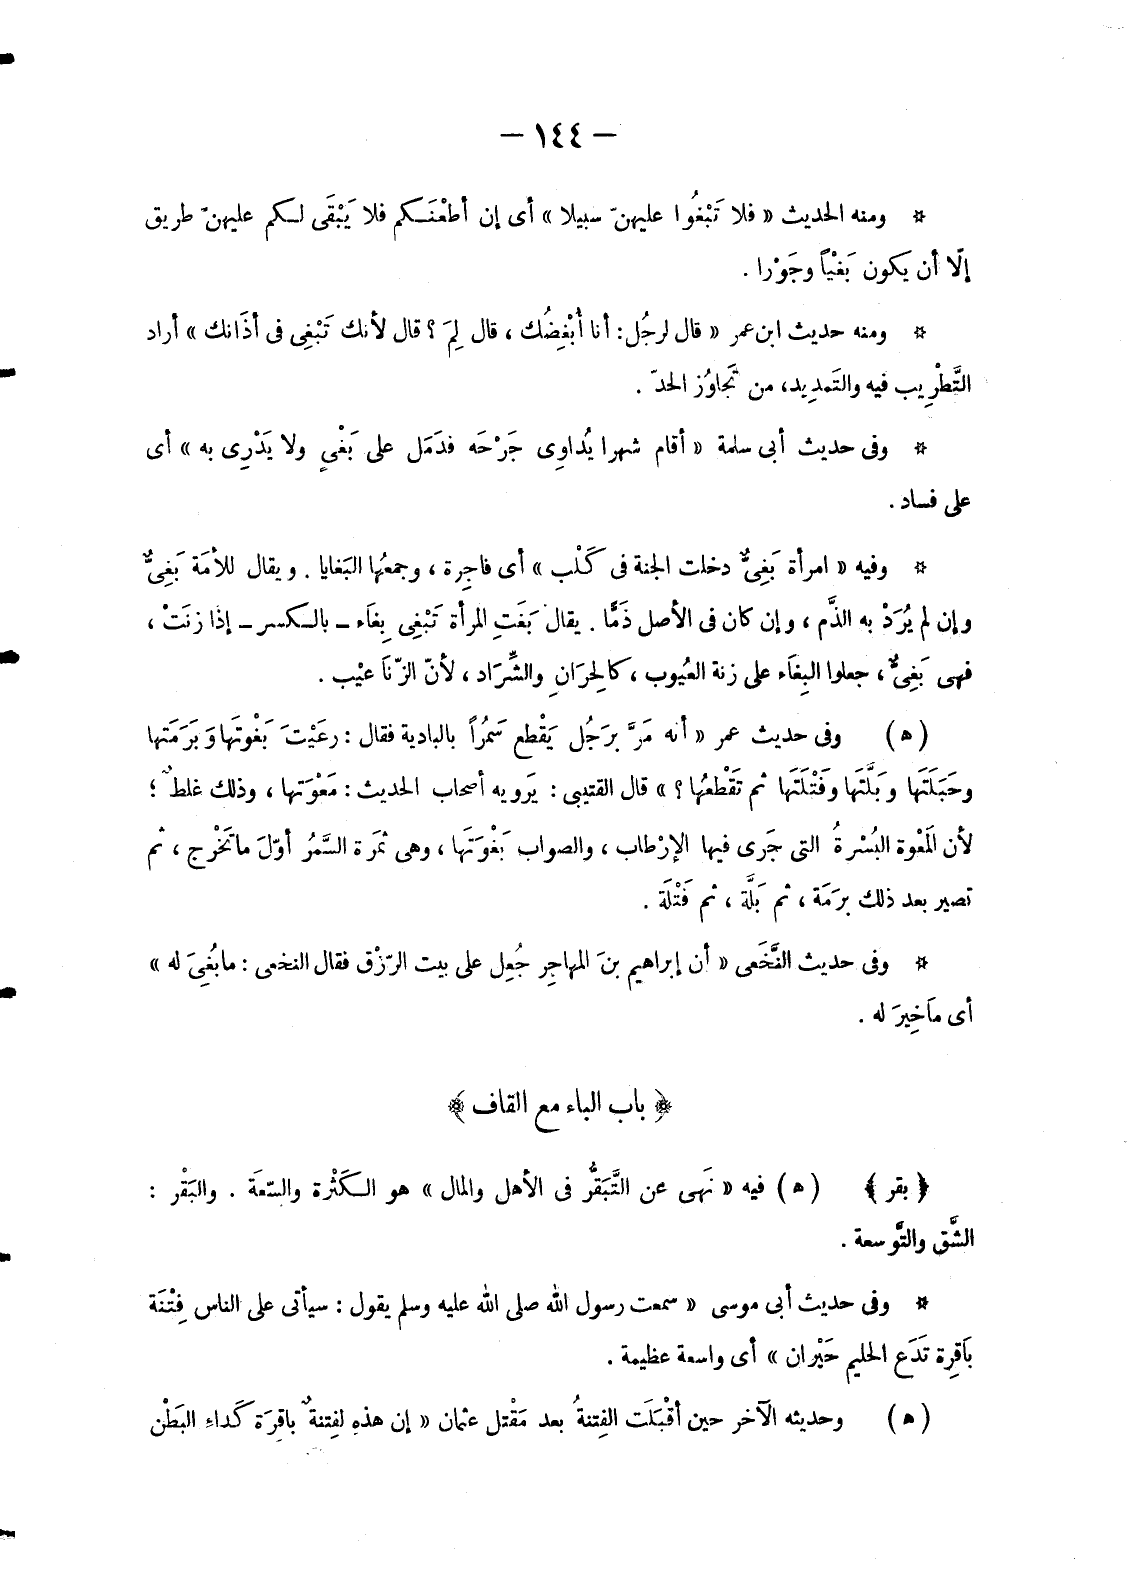 — ١٤٤ —
* ومنه الحديث « فلا تَبْغُوا عليهنّ سبيلا » أى إن أطعْنَـكم فلا يَبْقَى لـكم عليهنّ طريق
إلّا أن يكون بَغْياً وجَوْرا .
* ومنه حديث ابن عمر « قال لرجُل: أنا أُبْغِضُك ، قال لِمَ ؟ قال لأنك تَبْغِى فى أذَانك » أراد
التَّطْرِيب فيه والتَمديد، من تَجاوُز الحدّ .
* وفى حديث أبى سلمة « أقام شهرا يُداوِى جَرْحَه فدَمَل على بَغْىٍ ولا يَدْرِى به » أى
على فساد .
* وفيه « امرأة بَغِىٌّ دخلت الجنة فى كَلْب » أى فاجِرة ، وجمعُها البَغايا . ويقال للأمَة بَغِىٌّ
وإن لم يُرَدْ به الذَّم ، وإن كان فى الأصل ذَمًّا . يقال بَغَتِ المرأة تَبْغِى بِغَاء ــ بالـكسر ــ إذَا زنَتْ ،
فهى بَغِىٌّ ، جعلوا البِغَاء على زنة العُيوب ، كالحِرَانِ والشِّرَاد ، لأنّ الزّنَا عيْب .
( ه ) وفى حديث عمر « أنه مَرَّ برَجُل يَقْطع سَمُراً بالبادية فقال : رعَيْتَ بَغْوتَها وَبَرَمَتها
وحَبَلَتَها وَبَلَّتَها وفَتْلَتَها ثم تَقْطعُها ؟ » قال القتيبى : يَرويه أصحاب الحديث : مَعْوَتها ، وذلك غلطٌ ؛
لأن المَعْوة البُسْرةُ التى جَرى فيها الإرْطاب ، والصواب بَغْوَتَها ، وهى ثمَرة السَّمُر أوّلَ ماتَخْرج ، ثم
تصير بعد ذلك برَمَة ، ثم بَلَّة ، ثم فَتْلَة .
* وفى حديث النَّخَعى « أن إبراهيم بنَ المهاجِر جُعِل على بيت الرّزْق فقال النخعى : مابُغِىَ له »
أى ماَخِيرَ له .
﴿ باب الباء مع القاف ﴾
﴿ بقر ﴾ ( ه ) فيه « نَهى عن التَّبَقُّر فى الأهل والمال » هو الـكَثْرة والسّعَة . والبَقْر :
الشَّق والتَّوسعة .
* وفى حديث أبى موسى « سمعت رسول الله صلى الله عليه وسلم يقول : سيأتى على الناس فِتْنَة
بَاَقِرة تَدَع الحليم حَيْران » أى واسعة عظيمة .
( ه ) وحديثه الآخر حين أقْبَلَت الفِتنةُ بعد مَقْتل عثمان « إن هذهِ لفِتنةٌ باقِرَة كَداءِ البَطْن